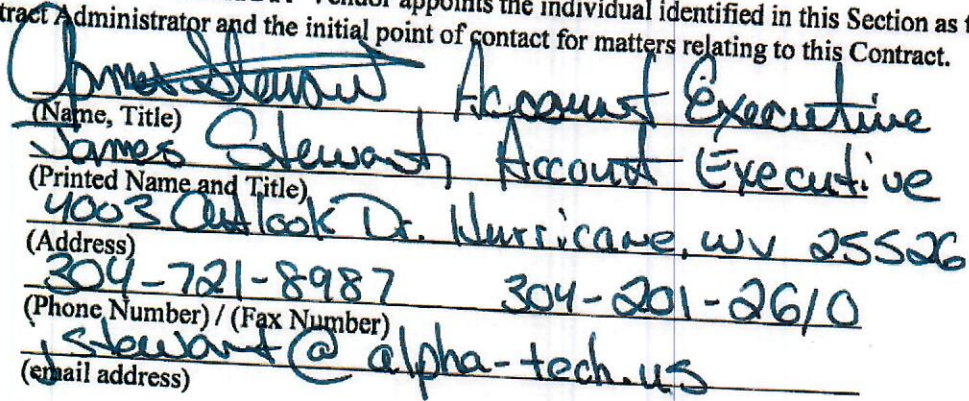 Vendor appoints the individual identified in this Section as
tract Administrator and the initial point of contact for matters relating to this Contract.
James Stewart Account Executive
(Name, Title)
James Stewart, Account Executive
(Printed Name and Title)
4003 Outlook Dr. Hurricane, WV 25526
(Address)
304-721-8987 304-201-2610
(Phone Number) / (Fax Number)
jstewart@alpha-tech.us
(email address)